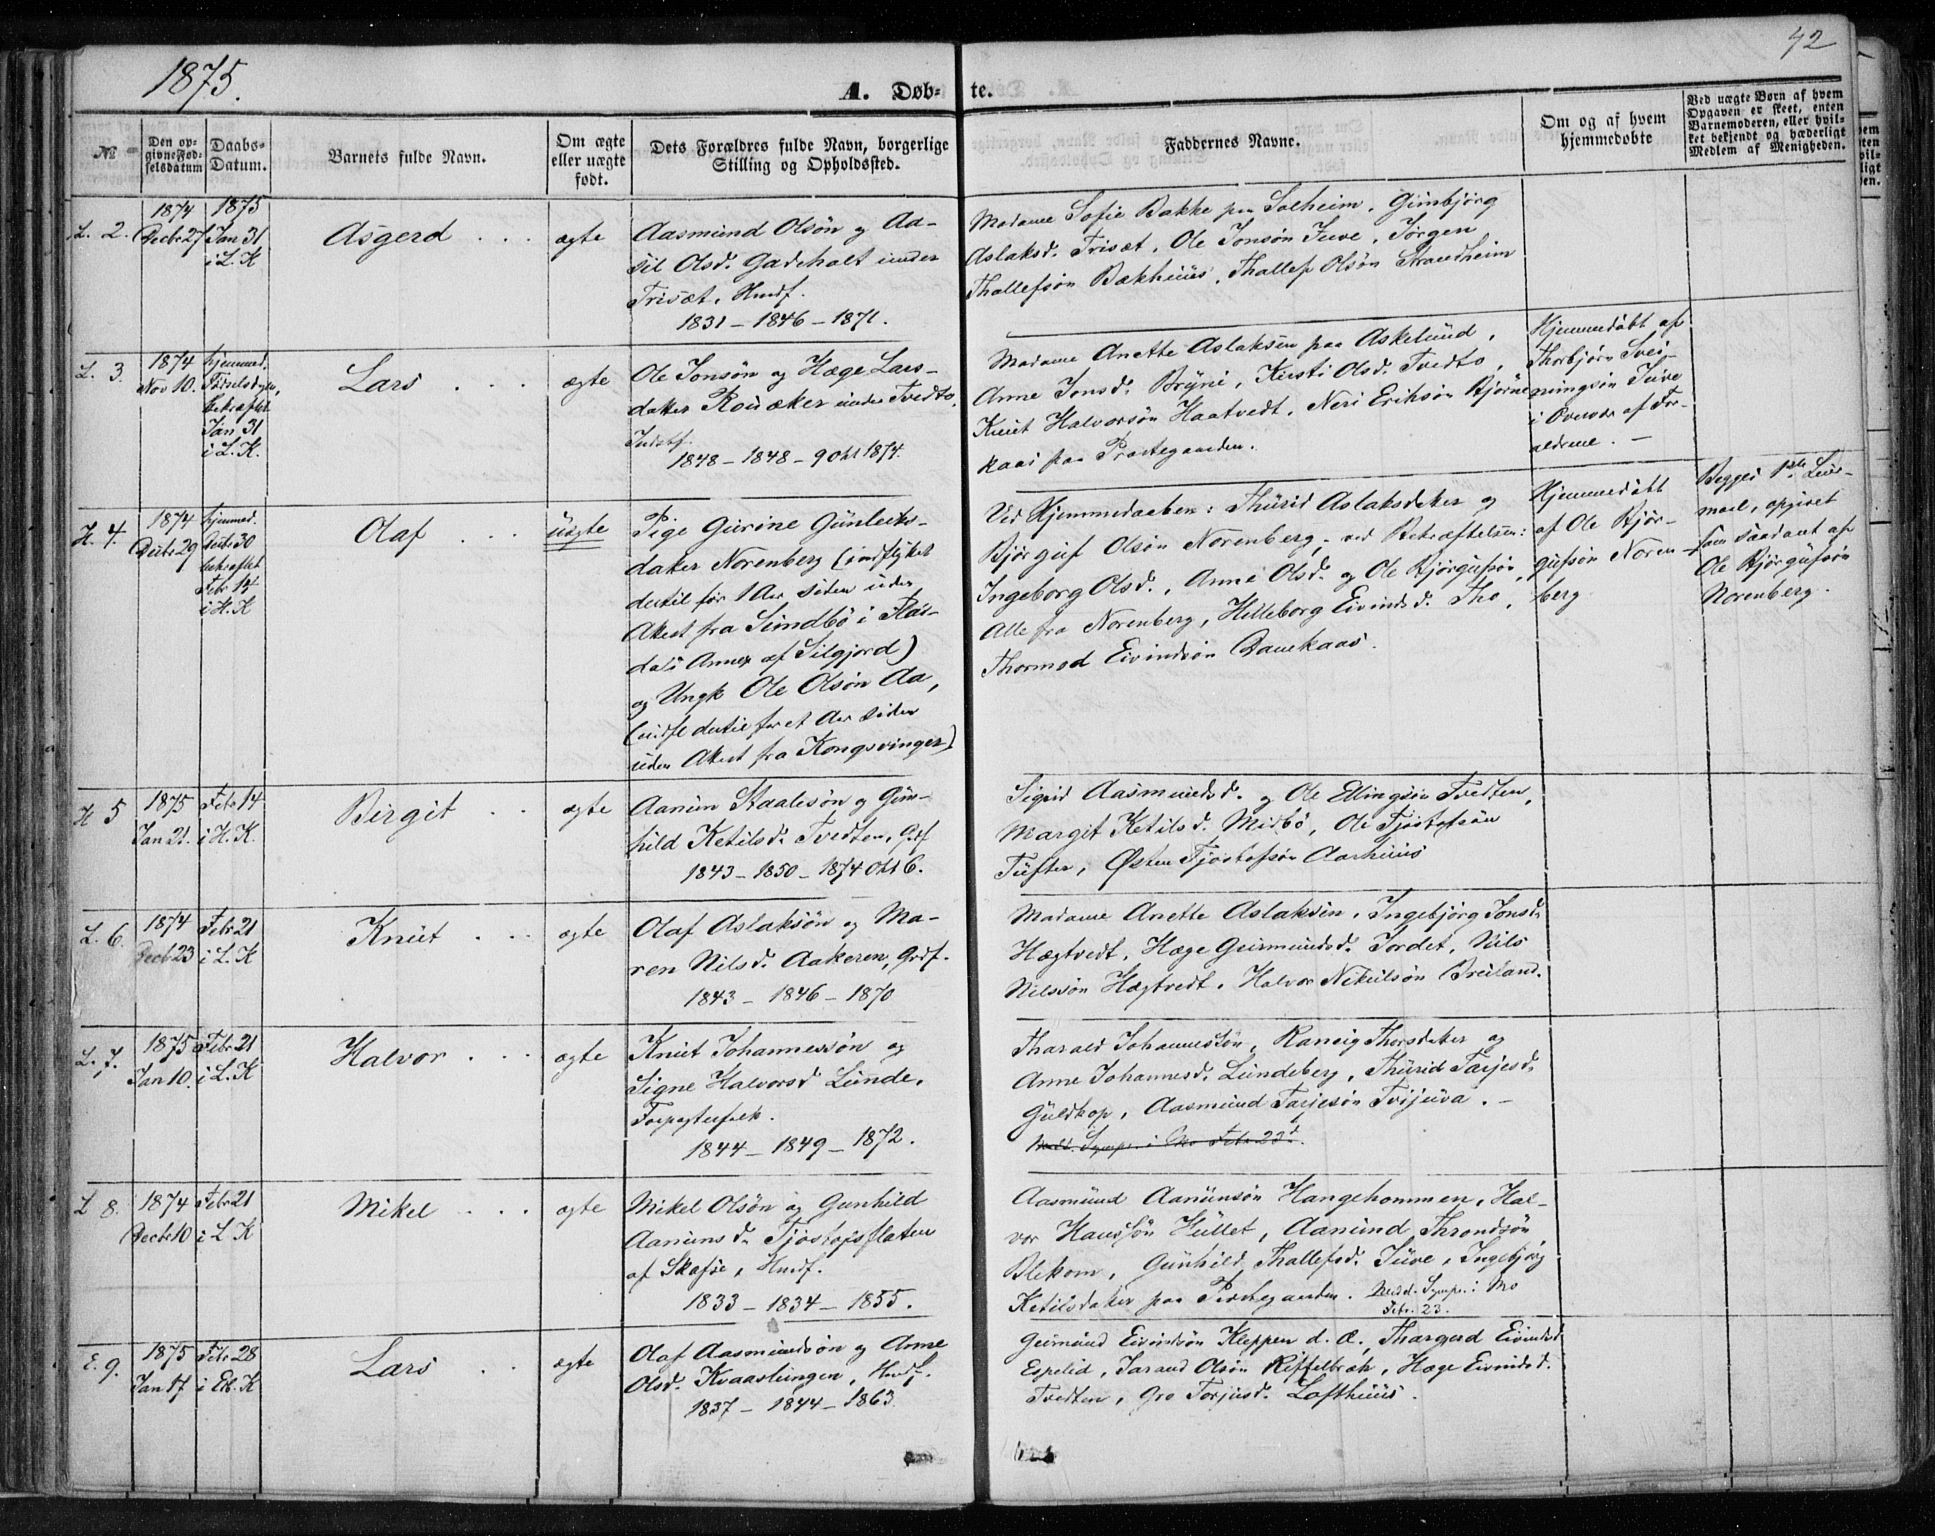 1875.
A. Døb-
te.
42
№
Den op-
givne Fød-
selsdatum
Daabs-
Datum.
Barnets fulde Navn.
Om ægte
eller uægte
født.
Dets Forældres fulde Navn, borgerlige
Stilling og Opholdssted.
Faddernes Navne.
Om og af hvem
hjemmedøbte
Ved uægte Børn af hvem
Opgaven er skeet, enten
Barnemoderen, eller hvil-
ket bekjendt og hæderligt
Medlem af Menigheden.
L. 2.
1874
Decbr 27
1875
Jan 31
i L. K
Asgerd
ægte
Aasmund Olsøn og Aa-
sil Olsd. Gadeholt under
Trisæt. Husmf.
1831 - 1846 - 1871.
Madame Sofie Bakke paa Solheim, Gunbjørg
Aslaksd. Trisæt. Ole Jonsøn Juve, Jørgen
Thallefsøn Bakhuus, Thallef Olsøn Strandheim
L. 3.
1874
Nov 10.
hjemmed.
bekræftet
Jan 31
i L. K.
Lars
ægte
Ole Jonsøn og Hæge Lars-
datter under Tvedto.
1848 - 1848 - 9 Okt 1874.
Madame Anette Aslaksen paa Askelund,
Anne Jonsd. Bryni, Kirsti Olsd. Tvedto,
Knut Halvorsøn Haatvedt, Neri Eriksøn Bjørne-
kaas paa Præstegaarden.
Hjemmedøbt af
Thorbjørn Svei-
nungsøn Juve
i Overvær af For-
ældrene. -
H. 4.
1874
Decbr 29
hjemmed.
Decbr 30
bekræftet
Febr 14
i H. K
Olaf
uægte
Pige Gurine Gunleiks-
datter Norenberg (indflyttet
dertil for 1 Aar siden uden
Attest fra Sundbø i Flas-
dals Annex af Silgjord)
og Ungk Ole Olsøn Aa,
(indfl dertil for et Aar siden
uden Attest fra Kongsvinger)
Ved Hjemmedaaben: Thurid Aslaksdatter og
Bjørguf Olsøn Norenberg, - ved Bekræftelsen:
Ingeborg Olsd., Anne Olsd. og Ole Bjørgufsøn,
Alle fra Norenberg, Helleborg Eivindsd. Tho,
Thormod Eivindsøn Danekaas.
Hjemmedøbt
af Ole Bjør-
gufsøn Noren-
berg
Begges 1ste Leier-
maal, opgivet
som saadant af
Ole Bjørgufsøn
Norenberg.
H 5
1875
Jan 21.
Febr 14
i H. K.
Birgit
ægte
Aanun Staalesøn og Gun-
hild Ketilsd. Tvedten, Grdf
1843 - 1850 - 1874 Okt 6.
Sigrid Aasmundsd. og Ole Ellingsøn Tvedten,
Margit Ketilsd. Midbø, Ole Tjostofsøn
Tufter, Østen Tjostofsøn Aarhuus
L. 6.
1874
Decbr 23
Febr 21
i L. K
Knut
ægte
Olaf Aslaksøn og Ma-
ren Nilsd. Aakeren, Grdf.
1843 - 1846 - 1870
Madame Anette Aslaksen, Ingebjørg Jonsd.
Hægtvedt, Hæge Guirmundsd. Jordet, Nils
Nilssøn Hægtvedt, Halvor Nikulsøn Breiland.
L. 7.
1875
Jan 10.
Febr 21
i L. K
Halvor
ægte
Knut Johannessøn og
Signe Halvorsd Lunde,
Forpagterfolk.
1844 - 1849 - 1872.
Tharald Johannessøn, Ranvig Thorsdatter og
Anne Johannesd. Lundeberg, Thurid Tarjesd.
Guldkop, Aasmund Tarjesøn Trijuva. -
L 8.
1874
Decbr 10
Febr 21
i L. K
Mikel
ægte
Mikel Olsøn og Gunhild
Aanunsd. Tjostofsflaten
af Skafse, Husmf.
1833 - 1834 - 1855.
Aasmund Aanunsøn Hangehommen, Hal-
vor Hanssøn Hullet, Aanund Throndsøn
Blekom, Gunhild Thallefsd. Juve, Ingebjørg
Ketilsdatter paa Præstegaarden. Medd. Sympr. i Mo
Febr. 23.
E. 9.
1875
Jan 17
Febr 28
i Eb. K
Lars
ægte
Olaf Aasmundsøn og Anne
Olsd. Kvaaslungen, Husmf.
1837 - 1844 - 1863.
Geirmund Eivindsøn Kleppen d. Æ., Thargerd Eivindsd
Espelid, Tarand Olsøn Riffelbræk, Hæge Eivindsd.
Tvedten, Gro Torjusd. Lofthuus.